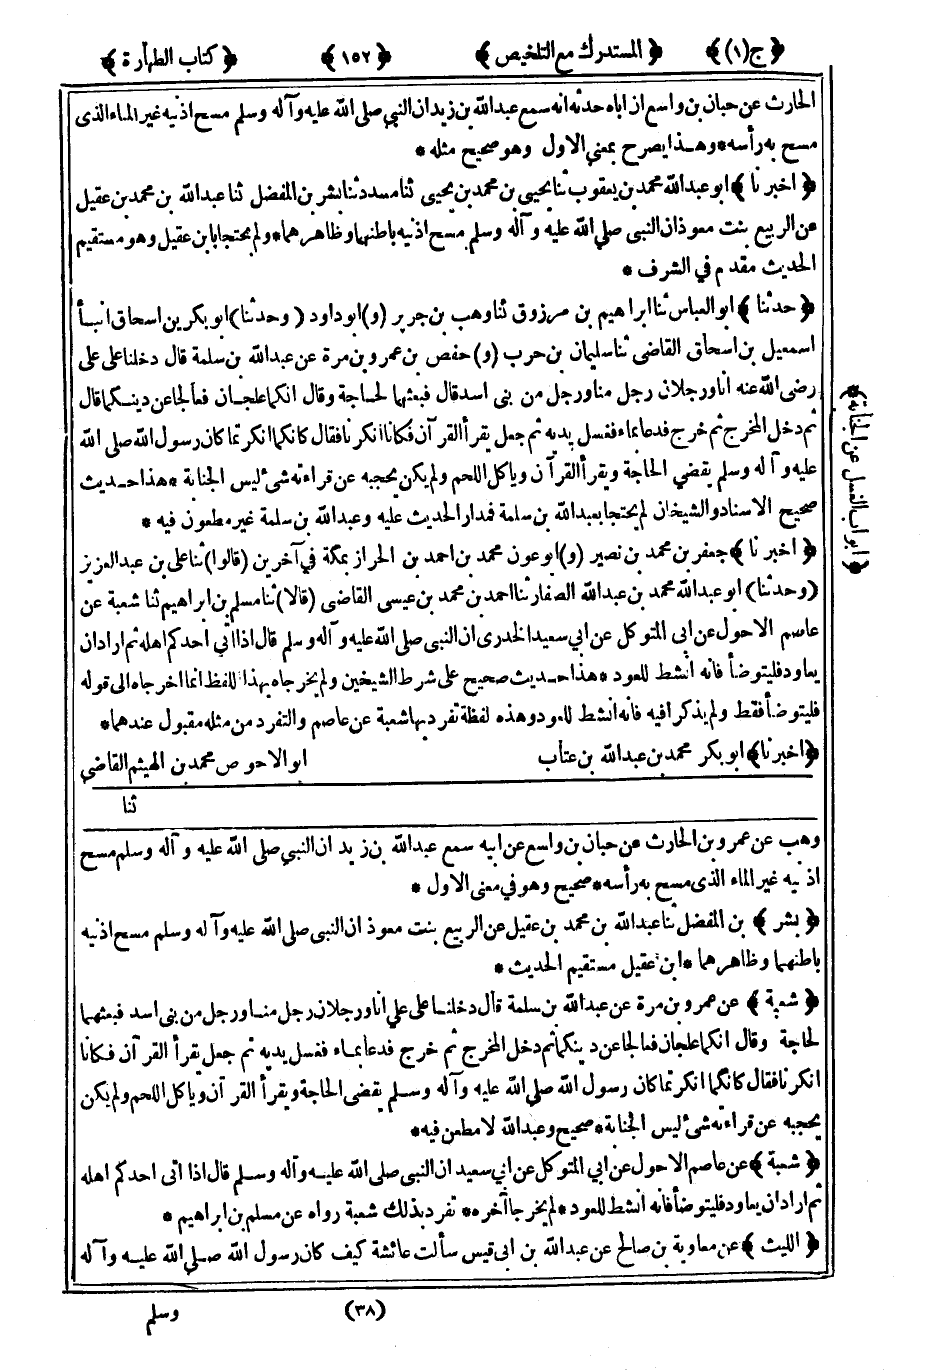 ﴿ ج (١) ﴾ ﴿ المستدرك مع التلخيص ﴾ ﴿ ١٥٢ ﴾ ﴿ كتاب الطهارة ﴾
الحارث عن حبان بن واسع ان اباه حدثه انه سمع عبدالله بن زيد ان النبي صلى الله عليه وآله وسلم مسح اذنيه غير الماء الذى
مسح به رأسه * وهذا يصرح بمعنى الاول وهو صحيح مثله *
﴿ اخبرنا ﴾ ابو عبدالله محمد بن يعقوب ثنا يحيى بن محمد بن يحيى ثنا مسدد ثنا بشر بن المفضل ثنا عبدالله بن محمد بن عقيل
عن الربيع بنت معوذ ان النبى صلى الله عليه وآله وسلم مسح اذنيه باطنهما وظاهرهما * ولم يحتجا بابن عقيل وهو مستقيم
الحديث مقدم في الشرف *
﴿ حدثنا ﴾ ابو العباس ثنا ابراهيم بن مرزوق ثنا وهب بن جرير (و) ابو داود (وحدثنا) ابو بكر بن اسحاق انبأ
اسمعيل بن اسحاق القاضى ثنا سليمان بن حرب (و) حفص بن عمرو بن مرة عن عبدالله بن سلمة قال دخلنا على على
رضى الله عنه انا ورجلان رجل منا ورجل من بنى اسد قال فبعثهما لحاجة وقال انكما علجان فعالجا عن دينكما قال
ثم دخل المخرج ثم خرج فدعا بماء فغسل يديه ثم جعل يقرأ القرآن فكانا انكرنا فقال كانكما انكرتما كان رسول الله صلى الله
عليه وآله وسلم يقضي الحاجة ويقرأ القرآن وياكل اللحم ولم يكن يحجبه عن قراءته شئ ليس الجنابة * هذا حديث
صحيح الاسناد والشيخان لم يحتجا بعبدالله بن سلمة فمدار الحديث عليه وعبدالله بن سلمة غير مطعون فيه *
﴿ اخبرنا ﴾ جعفر بن محمد بن نصير (و) ابو عون محمد بن احمد بن الحراز بمكة في آخرين (قالوا) ثنا على بن عبد العزيز
(وحدثنا) ابو عبدالله محمد بن عبدالله الصفار ثنا احمد بن محمد بن عيسى القاضى (قالا) ثنا مسلم بن ابراهيم ثنا شعبة عن
عاصم الاحول عن ابى المتوكل عن ابي سعيد الخدرى ان النبى صلى الله عليه وآله وسلم قال اذا اتي احدكم اهله ثم اراد ان
يعاود فليتوضأ فانه انشط للعود * هذا حديث صحيح على شرط الشيخين ولم يخرجاه بهذا للفظ انما اخرجاه الى قوله
فليتوضأ فقط ولم يذكرا فيه فانه انشط للعود وهذه لفظة تفرد بها شعبة عن عاصم والتفرد من مثله مقبول عندهما *
﴿ اخبرنا ﴾ ابو بكر محمد بن عبدالله بن عتاب ابو الاحوص محمد بن الهيثم القاضي
ثنا
وهب عن عمرو بن الحارث عن حبان بن واسع عن ابيه سمع عبدالله بن زيد ان النبي صلى الله عليه وآله وسلم مسح
اذنيه غير الماء الذى مسح به رأسه * صحيح وهو في معنى الاول *
﴿ بشر ﴾ بن المفضل ثنا عبدالله بن محمد بن عقيل عن الربيع بنت معوذ ان النبى صلى الله عليه وآله وسلم مسح اذنيه
باطنهما وظاهرهما * ابن عقيل مستقيم الحديث *
﴿ شعبة ﴾ عن عمرو بن مرة عن عبدالله بن سلمة قال دخلنا على علي انا ورجلان رجل منا ورجل من بنى اسد فبعثهما
لحاجة وقال انكما علجان فعالجا عن دينكما ثم دخل المخرج ثم خرج فدعا بماء فغسل يديه ثم جعل يقرأ القرآن فكانا
انكرنا فقال كانكما انكرتما كان رسول الله صلي الله عليه وآله وسلم يقضى الحاجة ويقرأ القرآن وياكل اللحم ولم يكن
يحجبه عن قراءته شئ ليس الجنابة * صحيح وعبدالله لا مطعن فيه *
﴿ شعبة ﴾ عن عاصم الاحول عن ابي المتوكل عن ابي سعيد ان النبى صلى الله عليه وآله وسلم قال اذا اتى احدكم اهله
ثم اراد ان يعاود فليتوضأ فانه انشط للعود * لم يخرجا آخره * تفرد بذلك شعبة رواه عن مسلم بن ابراهيم *
﴿ الليث ﴾ عن معاوية بن صالح عن عبدالله بن ابى قيس سألت عائشة كيف كان رسول الله صلي الله عليه وآله
(٣٨) وسلم
﴿ ابواب الغسل عن الجنابة ﴾